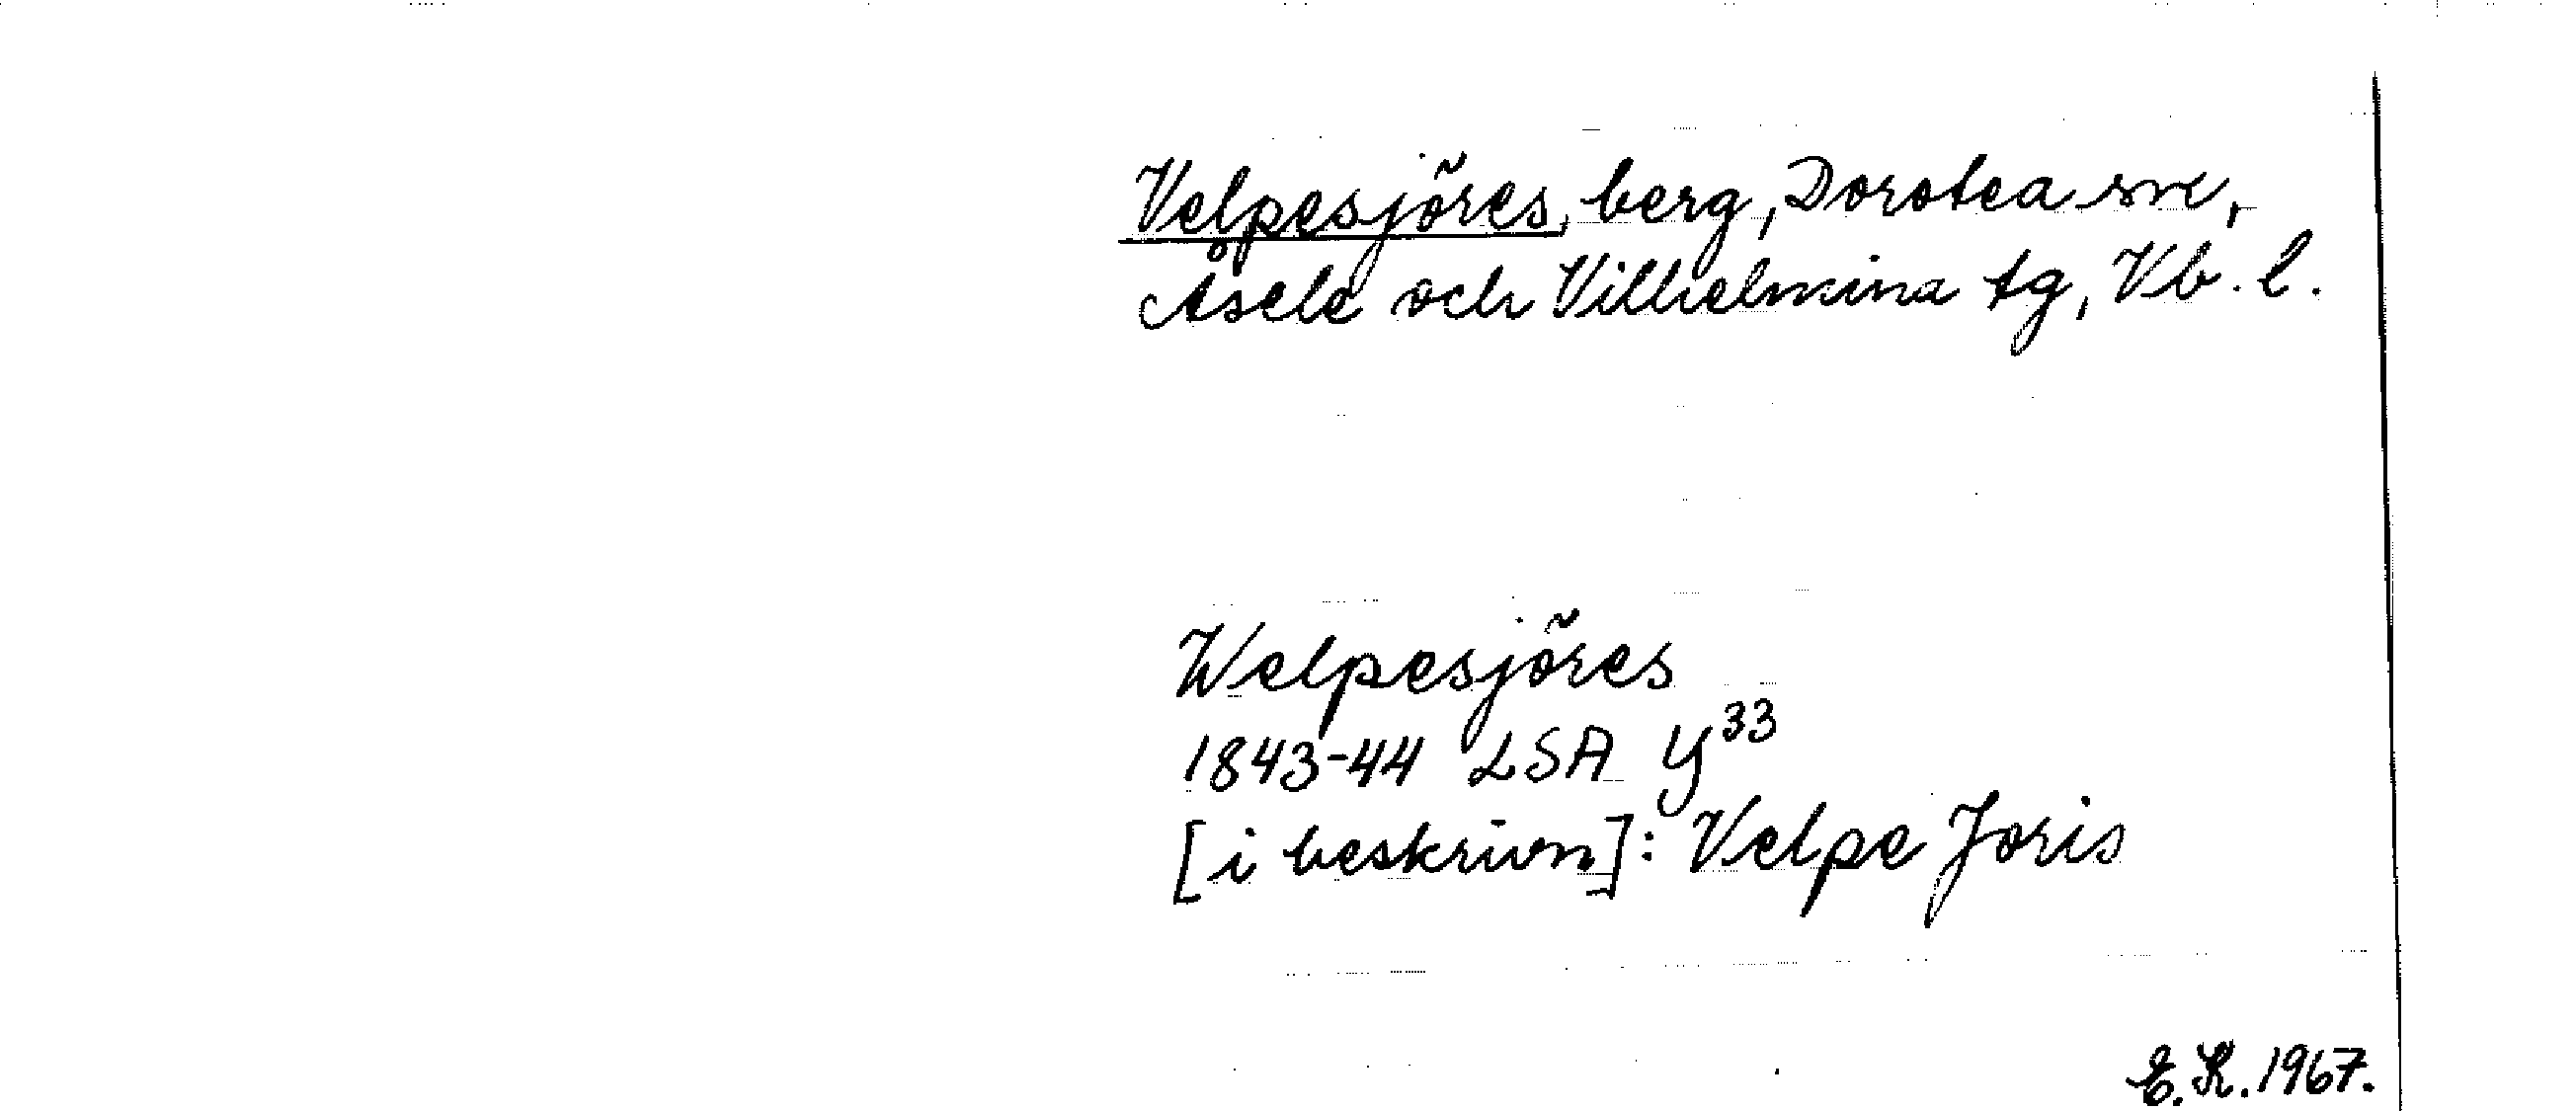 Velpesjöres, berg, Dorotea sn,
Åsele och Vilhelmina tg, Vb. l.
Welpesjöres
1843-44 LSA Y33
[i beskrivn]: Velpe Joris
E.K. 1967.